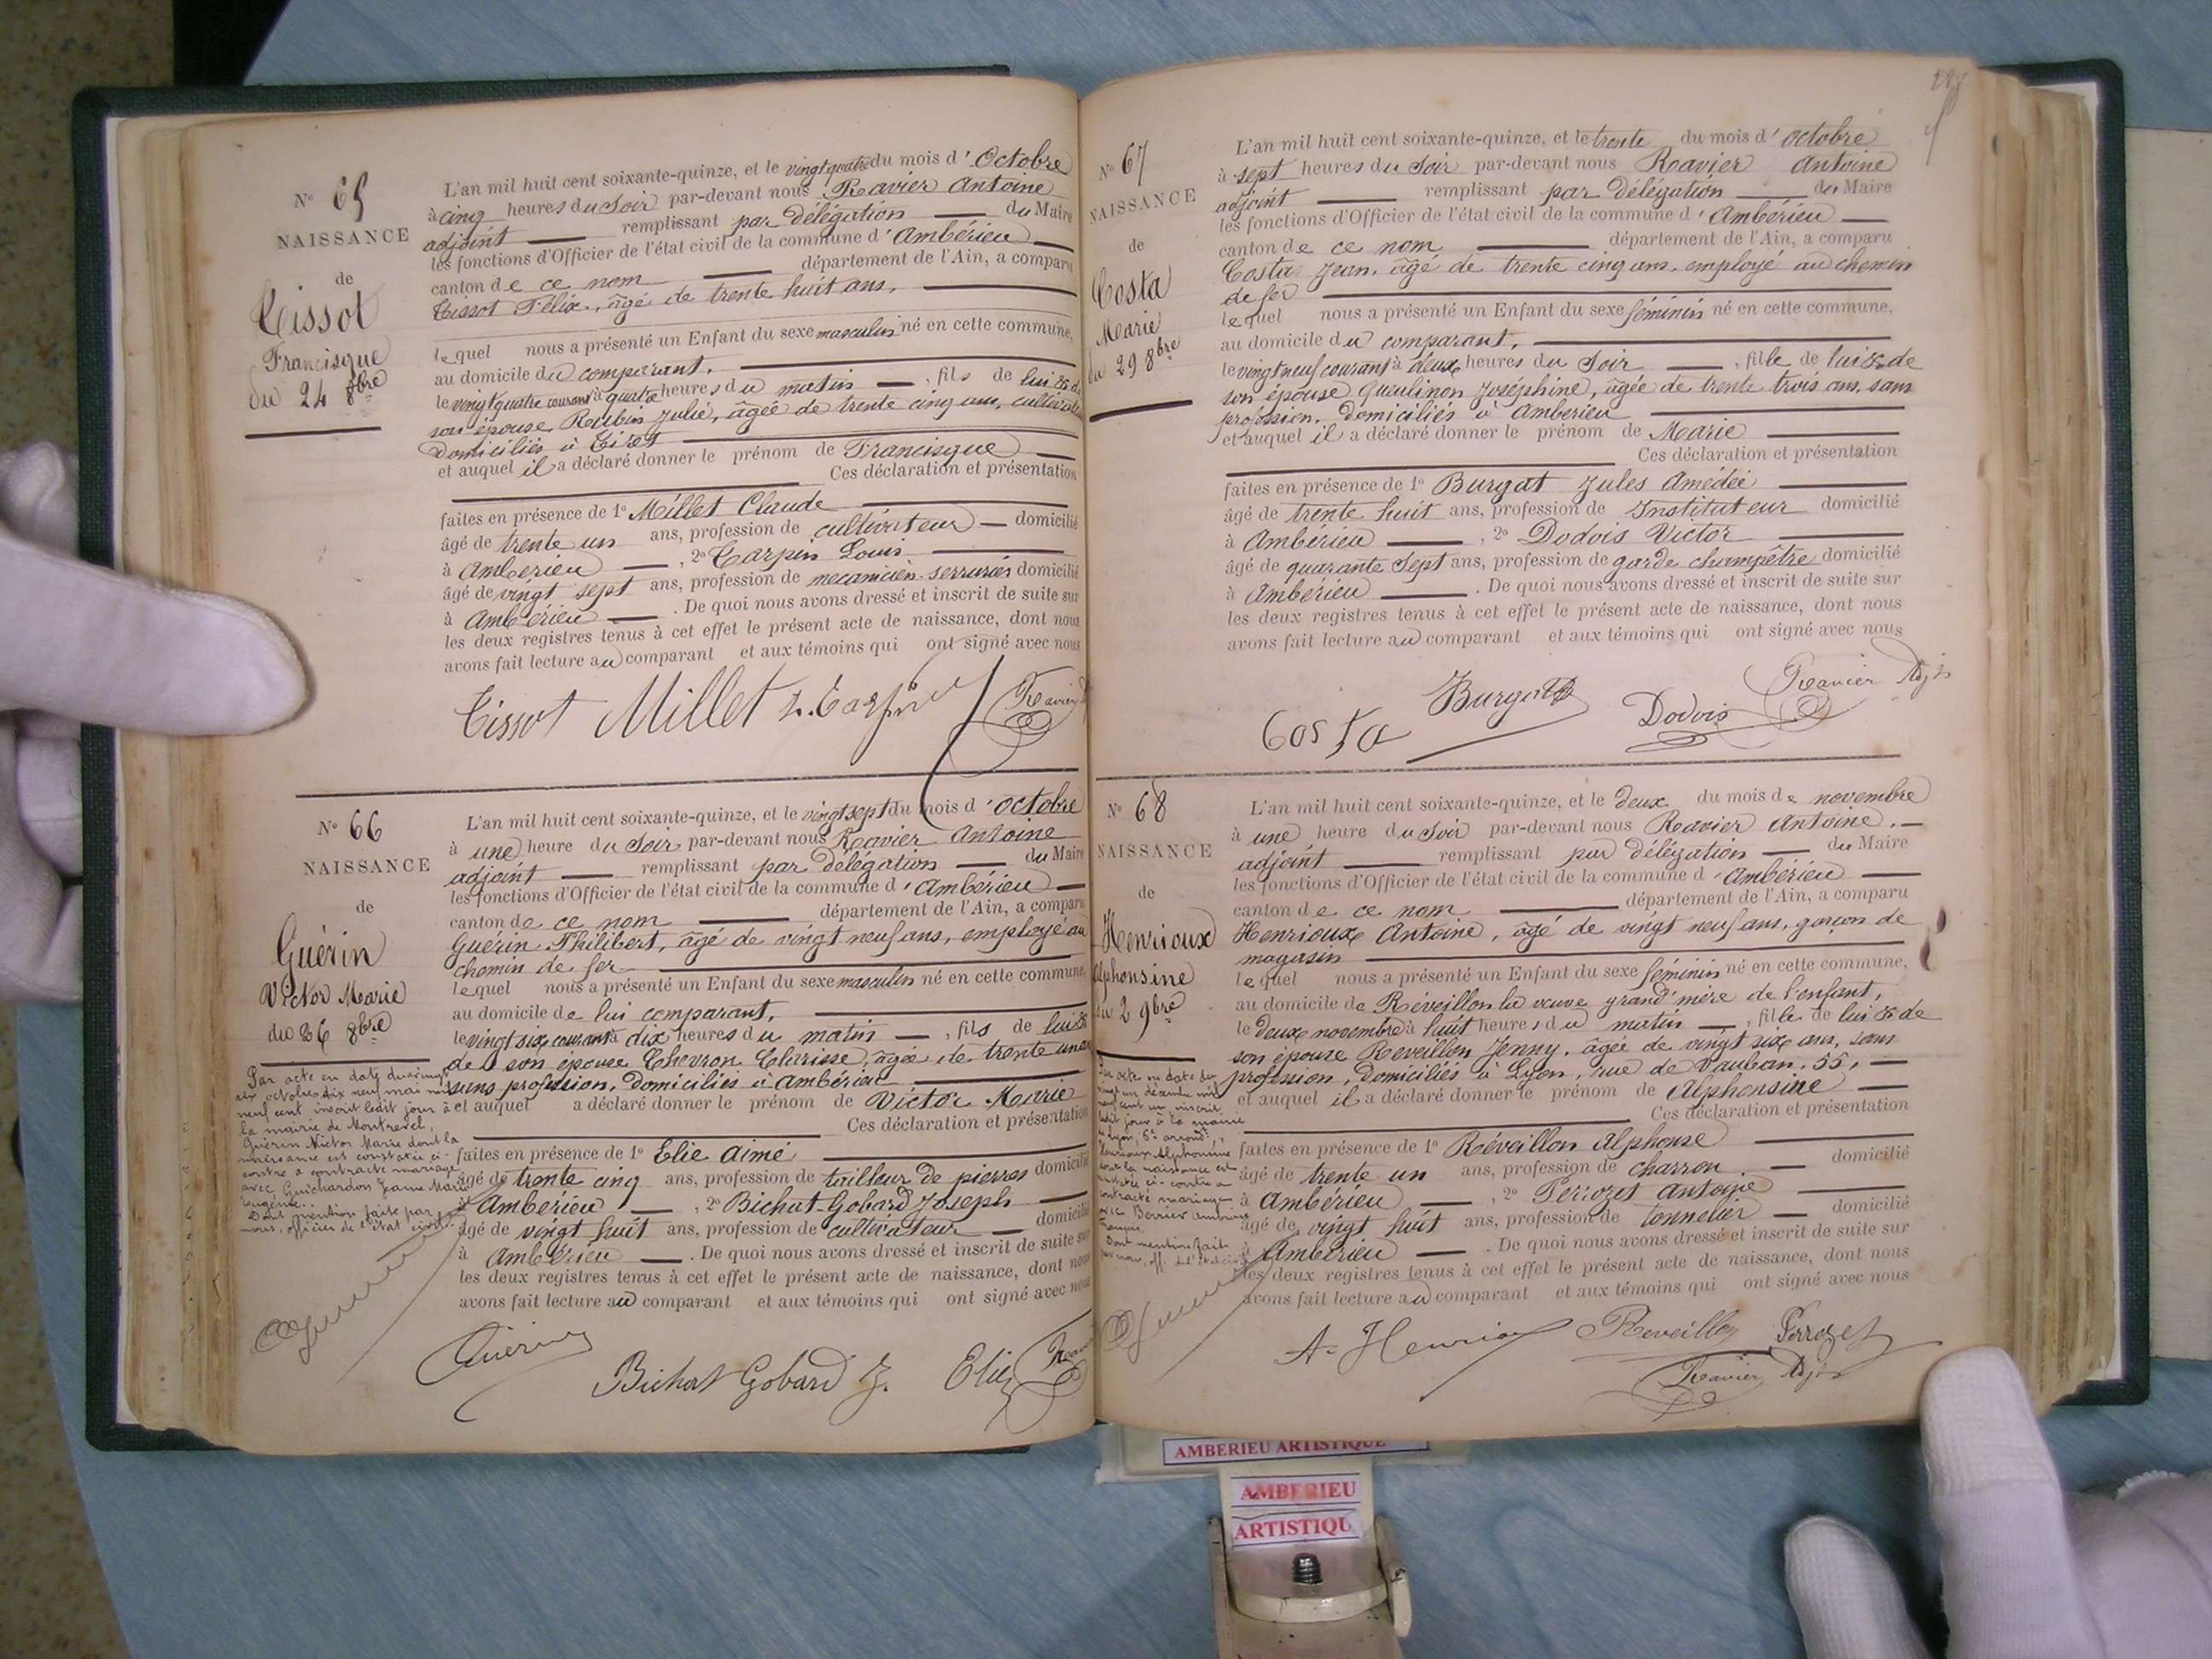 N° 65
NAISSANCE
de
Tissot
Francisque
du 24 8bre
L'an mil huit cent soixante-quinze, et le vingt quatre du mois d'Octobre
à cinq heures du Soir par-devant nous Ravier Antoine
adjoint remplissant par délégation du Maire
les fonctions d'Officier de l'état civil de la commune d'Ambérieu
canton de ce nom département de l'Ain, a comparu
Tissot Félix, âgé de trente huit ans,
lequel nous a présenté un Enfant du sexe masculin né en cette commune,
au domicile du comparant,
le vingt quatre courant à quatre heures du matin, fils de lui & de
son épouse Roubin Julie, âgée de trente cinq ans,
domiciliés à
et auquel il a déclaré donner le prénom de Francisque
Ces déclaration et présentation
faites en présence de 1° Millet Claude
âgé de trente un ans, profession de cultivateur domicilié
à Ambérieu, 2° Carpin Louis
âgé de vingt sept ans, profession de mecanicien-serrurier domicilié
à Ambérieu. De quoi nous avons dressé et inscrit de suite sur
les deux registres tenus à cet effet le présent acte de naissance, dont nous
avons fait lecture au comparant et aux témoins qui ont signé avec nous
Tissot Millet L. Carpin Ravier
N° 66
NAISSANCE
de
Guérin
Victor Marie
du 26 8bre
L'an mil huit cent soixante-quinze, et le vingt sept du mois d'octobre
à une heure du Soir par-devant nous Ravier Antoine
adjoint remplissant par délégation du Maire
les fonctions d'Officier de l'état civil de la commune d'Ambérieu
canton de ce nom département de l'Ain, a comparu
Guérin Philibert, âgé de vingt neuf ans, employé au
chemin de fer
lequel nous a présenté un Enfant du sexe masculin né en cette commune,
au domicile de lui comparant,
le vingt six courant à dix heures du matin, fils de lui &
de son épouse Chevron Clarisse, âgée de trente un ans
sans profession, domiciliés à Ambérieu
et auquel a déclaré donner le prénom de Victor Marie
Ces déclaration et présentation
faites en présence de 1° Elie Aimé
âgé de trente cinq ans, profession de tailleur de pierres domicilié
à Ambérieu, 2° Bichat-Gobard Joseph
âgé de vingt huit ans, profession de cultivateur domicilié
à Ambérieu. De quoi nous avons dressé et inscrit de suite sur
les deux registres tenus à cet effet le présent acte de naissance, dont nous
avons fait lecture au comparant et aux témoins qui ont signé avec nous
Par acte en date du vingt
six octobre dix neuf mai mil
neuf cent inscrit ledit jour à
la mairie de Montrevel,
Guérin Victor Marie dont la
naissance est constatée ci-
contre a contracté mariage
avec Guichardon Jeanne Marie
Eugénie.
Dont mention faite par
nous, officier de l'état civil.
Guérin Bichat Gobard J. Elie Ravier
N° 67
NAISSANCE
de
Costa
Marie
du 29 8bre
L'an mil huit cent soixante-quinze, et le trente du mois d'octobre
à sept heures du Soir par-devant nous Ravier Antoine
adjoint remplissant par délégation du Maire
les fonctions d'Officier de l'état civil de la commune d'Ambérieu
canton de ce nom département de l'Ain, a comparu
Costa Jean, âgé de trente cinq ans, employé au chemin
de fer
lequel nous a présenté un Enfant du sexe féminin né en cette commune,
au domicile du comparant,
le vingt neuf courant à deux heures du Soir, fille de lui & de
son épouse Joséphine, âgée de trente trois ans, sans
profession, domiciliés à Amberieu
et auquel il a déclaré donner le prénom de Marie
Ces déclaration et présentation
faites en présence de 1° Burgat Jules Amédée
âgé de trente huit ans, profession de Instituteur domicilié
à Ambérieu, 2° Dodois Victor
âgé de quarante sept ans, profession de garde champêtre domicilié
à Ambérieu. De quoi nous avons dressé et inscrit de suite sur
les deux registres tenus à cet effet le présent acte de naissance, dont nous
avons fait lecture au comparant et aux témoins qui ont signé avec nous
Costa Burgat Dodois Ravier Adj.
N° 68
NAISSANCE
de
Henrioux
Alphonsine
du 2 9bre
L'an mil huit cent soixante-quinze, et le deux du mois de novembre
à une heure du Soir par-devant nous Ravier Antoine,
adjoint remplissant par délégation du Maire
les fonctions d'Officier de l'état civil de la commune d'Ambérieu
canton de ce nom département de l'Ain, a comparu
Henrioux Antoine, âgé de vingt neuf ans, garçon de
magasin
lequel nous a présenté un Enfant du sexe féminin né en cette commune,
au domicile de Réveillon la veuve grand'mère de l'enfant,
le deux novembre à huit heures du matin, fille de lui & de
son épouse Reveillon Jenny, âgée de vingt six ans, sans
profession, domiciliés à Lyon, rue de Vauban, 55,
et auquel il a déclaré donner le prénom de Alphonsine
Ces déclaration et présentation
faites en présence de 1° Réveillon Alphonse
âgé de trente un ans, profession de charron domicilié
à Ambérieu, 2° Perrozet Antoine
âgé de vingt huit ans, profession de tonnelier domicilié
à Ambérieu. De quoi nous avons dressé et inscrit de suite sur
les deux registres tenus à cet effet le présent acte de naissance, dont nous
avons fait lecture au comparant et aux témoins qui ont signé avec nous
Par acte en date du
vingt un décembre mil
neuf cent un inscrit
ledit jour à la mairie
de Lyon, 6e arrondt,
Henrioux Alphonsine
dont la naissance est
constatée ci-contre a
contracté mariage
avec
François.
Dont mention faite
par nous, off. de l'état civil
A. Henrioux Reveillon Perrozet
Ravier Adj.
AMBERIEU ARTISTIQUE
AMBERIEU
ARTISTIQU